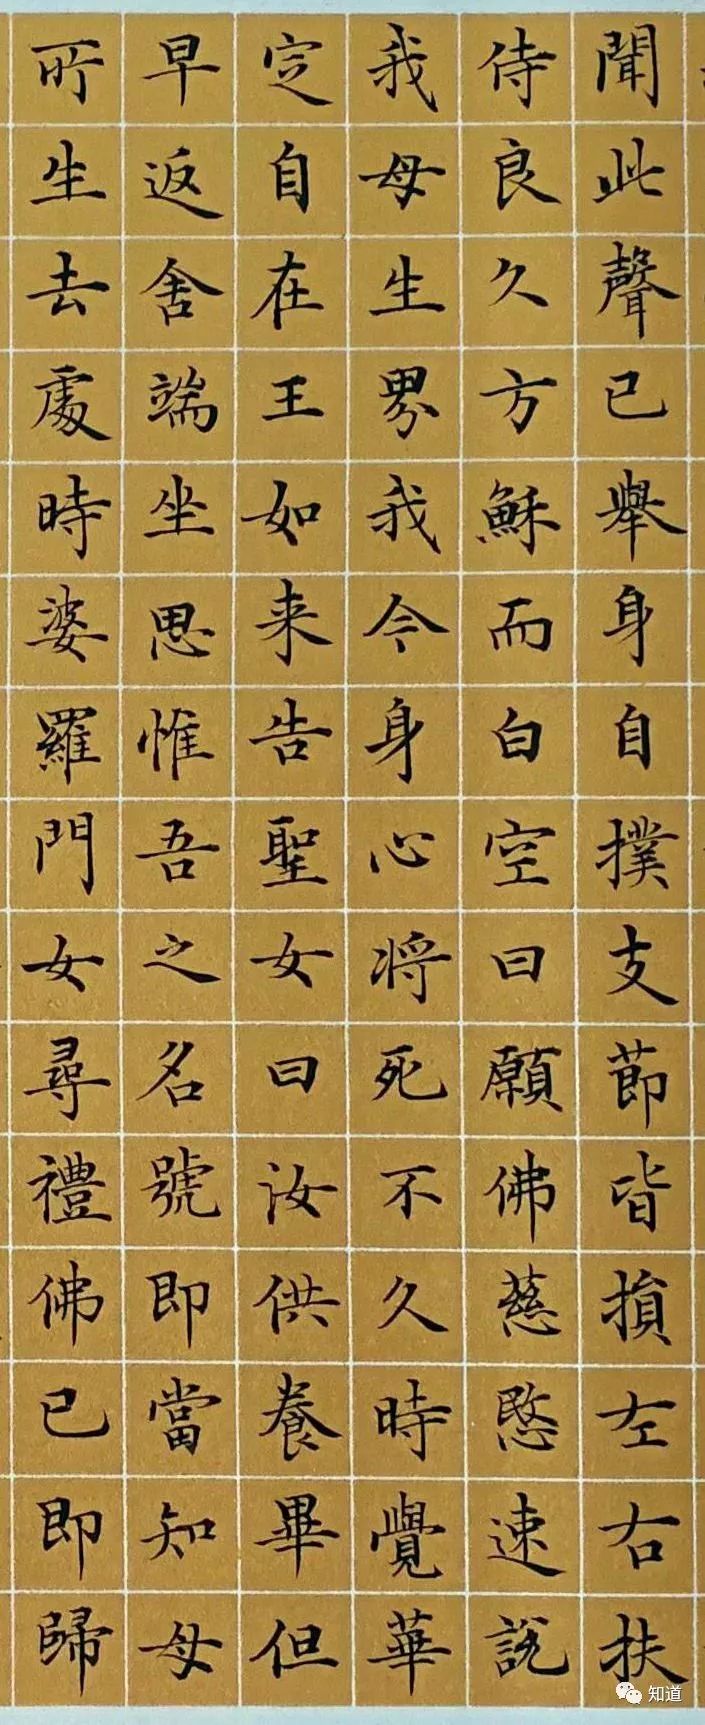 聞此聲已舉身自撲支節皆損左右扶
侍良久方穌而白空曰願佛慈愍速說
我母生界我今身心將死不久時覺華
定自在王如来告聖女曰汝供養畢但
早返舍端坐思惟吾之名號即當知母
所生去處時婆羅門女尋禮佛已即歸
知道